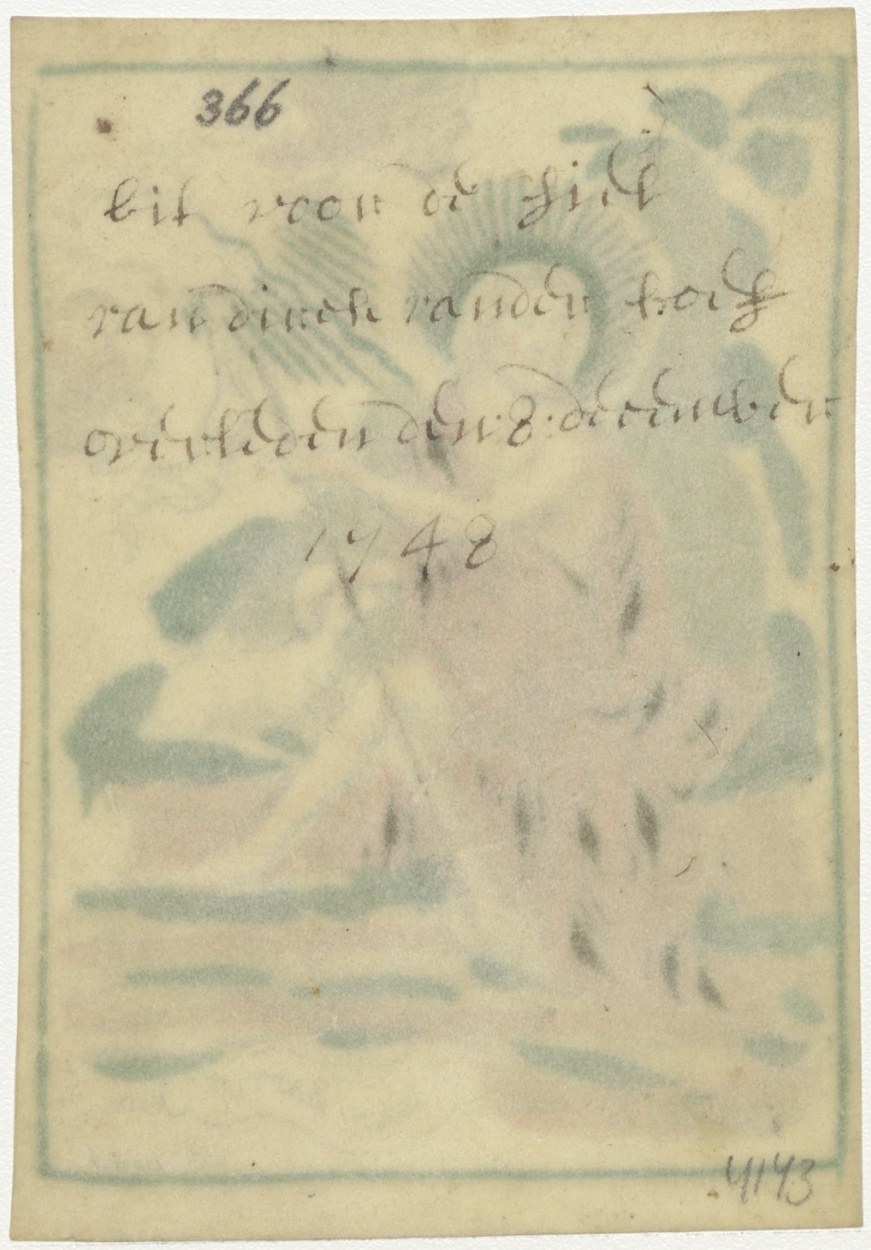 366
bit voor de ziel
van dirck vanden hoek
overleden den·8·december
1748
4143